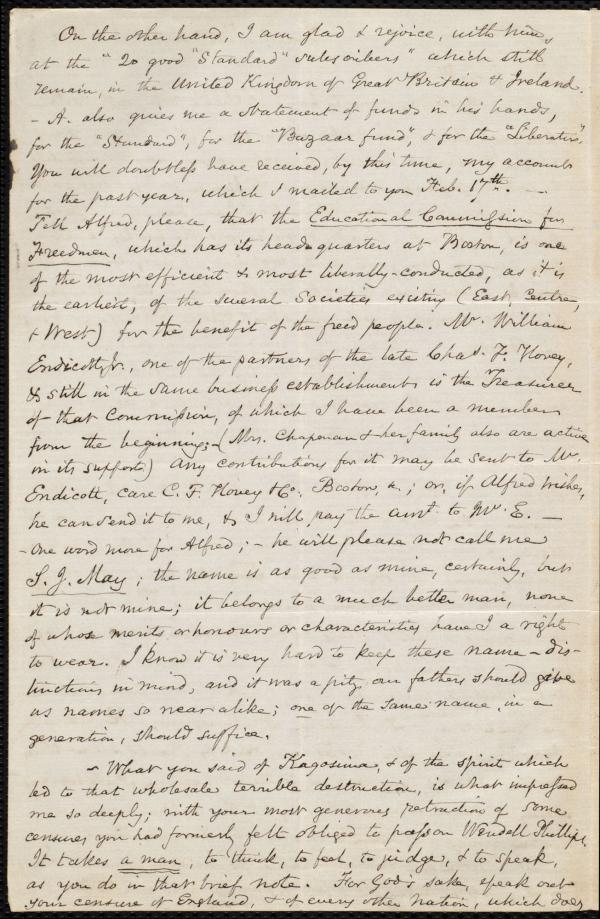 On the other hand, I am glad & rejoice, with him,
at the "20 good "Standard" subscribers" which still
remain, in the United Kingdom of Great Britain & Ireland.
- A. also gives me a statement of funds in his hands,
for the "Standard", for the "Bazaar fund", & for the "Liberator".
You will doubtless have received, by this time, my accounts
for the past year, which I mailed to you Feb. 17th. —
Tell Alfred, please, that the Educational Commission for
Freedmen, which has its head quarters at Boston, is one
of the most efficient & most liberally-conducted, as it is
the earliest, of the several Societies existing (East, Centre,
& West) for the benefit of the freed people. Mr. William
Endicott, Jr., one of the partners of the late Chas. F. Hovey,
& still in the same business establishment, is the Treasurer
of that Commission, of which I have been a member
from the beginning; (Mrs. Chapman & her family also are active
in its support.) Any contributions for it may be sent to Mr.
Endicott, care C. F. Hovey & Co. Boston, &.; or, if Alfred wishes,
he can send it to me, & I will pay the amt. to Mr. E. —
- One word more for Alfred; - he will please not call me
S. J. May; the name is as good as mine, certainly, but
it is not mine; it belongs to a much better man, none
of whose merits or honours or characteristics have I a right
to wear. I know it is very hard to keep these name-dis-
tinctions in mind, and it was a pity our fathers should give
us names so near alike; one of the same name, in a
generation, should suffice.
- What you said of Kagosima, & of the spirit which
led to that wholesale terrible destruction, is what impressed
me so deeply; with your most generous retraction of some
censures you had formerly felt obliged to pass on Wendell Phillips.
It takes a man, to think, to feel, to judge, & to speak,
as you do in that brief note. For God's sake, speak out
your censure of England, & of every other nation, which does